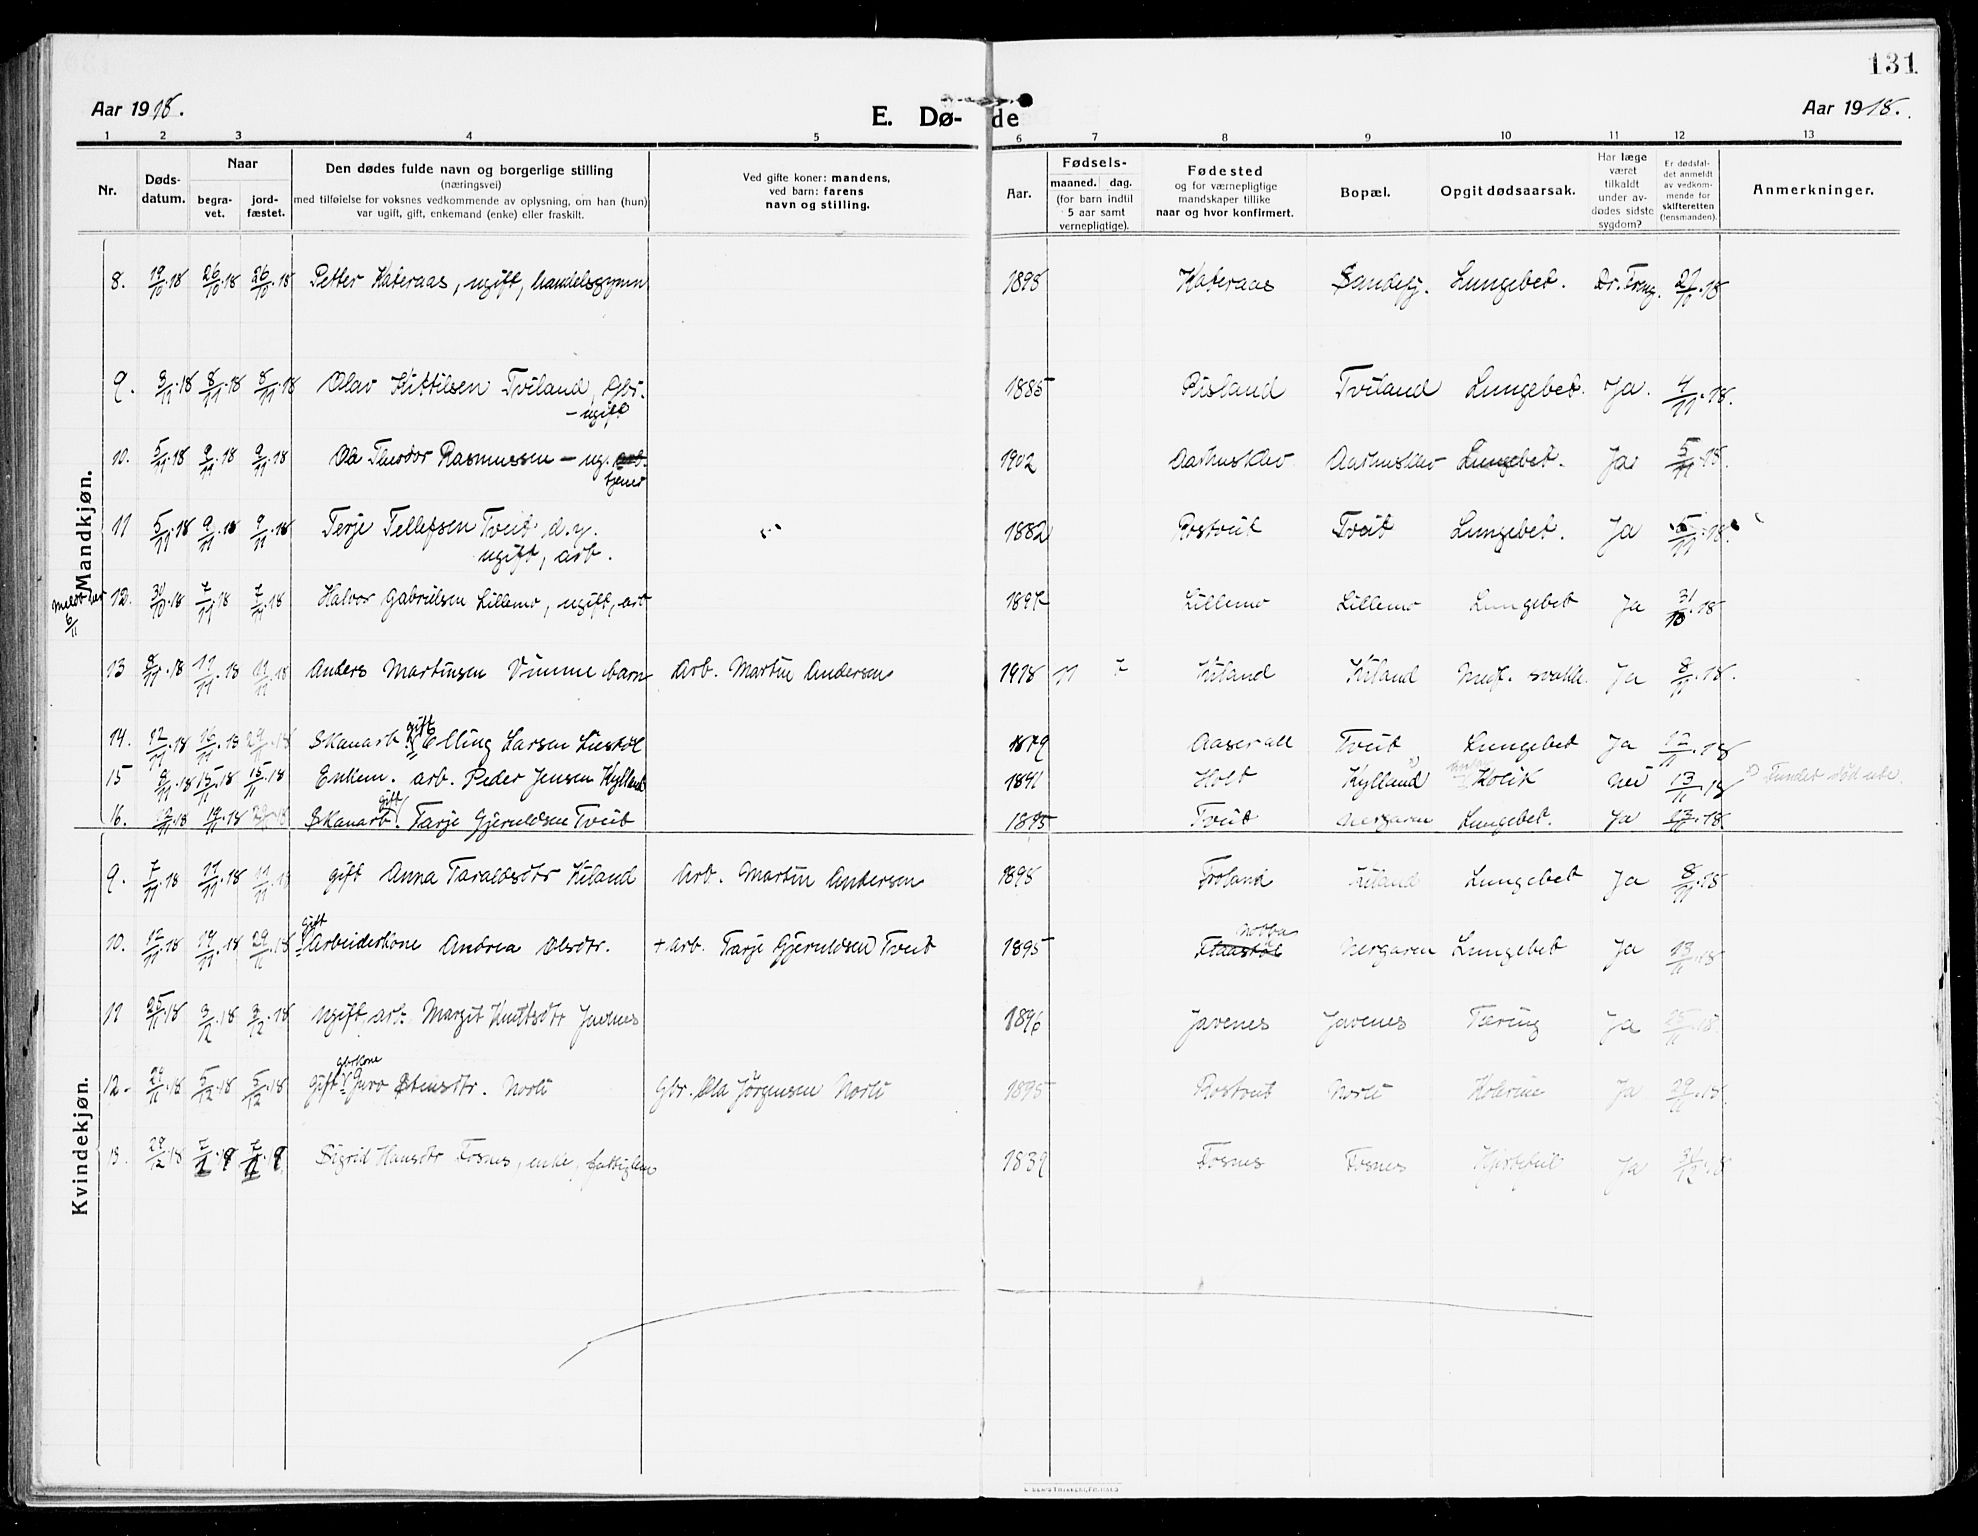 131
Aar 1918.
E. Dø-de
Aar 1918.
1 2 3 4 5 6 7 8 9 10 11 12 13
Nr.
Døds-datum.
Naar
begra-vet.
jord-fæstet.
Den dødes fulde navn og borgerlige stilling
(næringsvei)
med tilføielse for voksnes vedkommende av oplysning, om han (hun)
var ugift, gift, enkemand (enke) eller fraskilt.
Ved gifte koner: mandens,
ved barn: farens
navn og stilling.
Aar.
Fødsels-
maaned. dag.
(for barn indtil
5 aar samt
vernepligtige).
Fødested
og for værnepligtige
mandskaper tillike
naar og hvor konfirmert.
Bopæl.
Opgit dødsaarsak.
Har læge
været
tilkaldt
under av-
dødes sidste
sygdom?
Er dødsfal-
det anmeldt
av vedkom-
mende for
skifteretten
(lensmanden).
Anmerkninger.
Mandkjøn.
8. 19/10.18 26/10.18 26/10.18 Petter Kateraas, ugift, handelsgymn 1898 Kateraas Sandefj. Lungebet. 27/10.18
9. 3/11.18 8/11.18 8/11.18 Olav Kittilsen Tviland, Gbr. 1885 Risland Tviland Lungebet. Ja. 4/11.18.
– ugift
10. 5/11.18 9/11.18 9/11.18 Ola Theodor Rasmussen – ug. arb. 1902 Aarhuskløv Aarhuskløv Lungebet. Ja 5/11.18.
tjener
11 5/11.18 9/11.18 9/11.18 Terje Tellefsen Tveit d.y. 1882 Rostveit Tveit Lungebet. Ja 5/11.18.
ugift, arb.
12. 30/10.18 7/11.18 7/11.18 Halvor Gabrielsen Lillemo, ugift, arb 1897 Lillemo Lillemo Lungebet Ja 31/10.18
6/11
13 8/11.18 11/11.18 11/11.18 Anders Martinsen Vimme barn Arb. Martin Andersen 1918 11 7 Kiland Kiland Medf. svakh. Ja 8/11.18.
gift
14. 12/11.18 16/11.18 29/11.18 Skanarb. Elling Larsen Liestøl 1879 Aaseral Tveit Lungebet Ja 12/11.18
15 9/11.18 15/11.18 15/11.18 Enkem. arb. Peder Jensen Kylland 1841 Holt Kylland Kolik Nei 13/11.18 Fundet død ute.
gift
16. 12/11.18 19/11.18 29/11.18 Skanarb. Tarje Gjeruldsen Tveit 1895 Tveit Nergaren Lungebet. Ja 13/11.18
Kvindekjøn.
9. 7/11.18 11/11.18 11/11.18 gift Anna Taraldsdtr Kiland Arb. Martin Andersen 1898 Froland Kiland Lungebet Ja 8/11.18
gift
10. 12/11.18 19/11.18 29/11.18 Arbeiderkone Andrea Olsdtr. + Arb. Tarje Gjeruldsen Tveit 1895 Flaastøl Nergaren Lungebet Ja 13/11.18
11 25/11.18 3/12.18 3/12.18 ugift, arb. Margit Knutsdtr Javenes 1896 Javenes Javenes Tæring Ja 25/11.18
gbrkone
12. 29/11.18 5/12.18 5/12.18 gift Guro Stensdtr. Norli Gbr. Ola Jörgensen Norli 1895 Rostveit Norli Kolerine Ja 29/11.18
13. 29/12.18 Sigrid Hansdtr Fosnes, enke, fattiglem 1839 Fosnes Fosnes Hjertefeil Ja 31/12.18